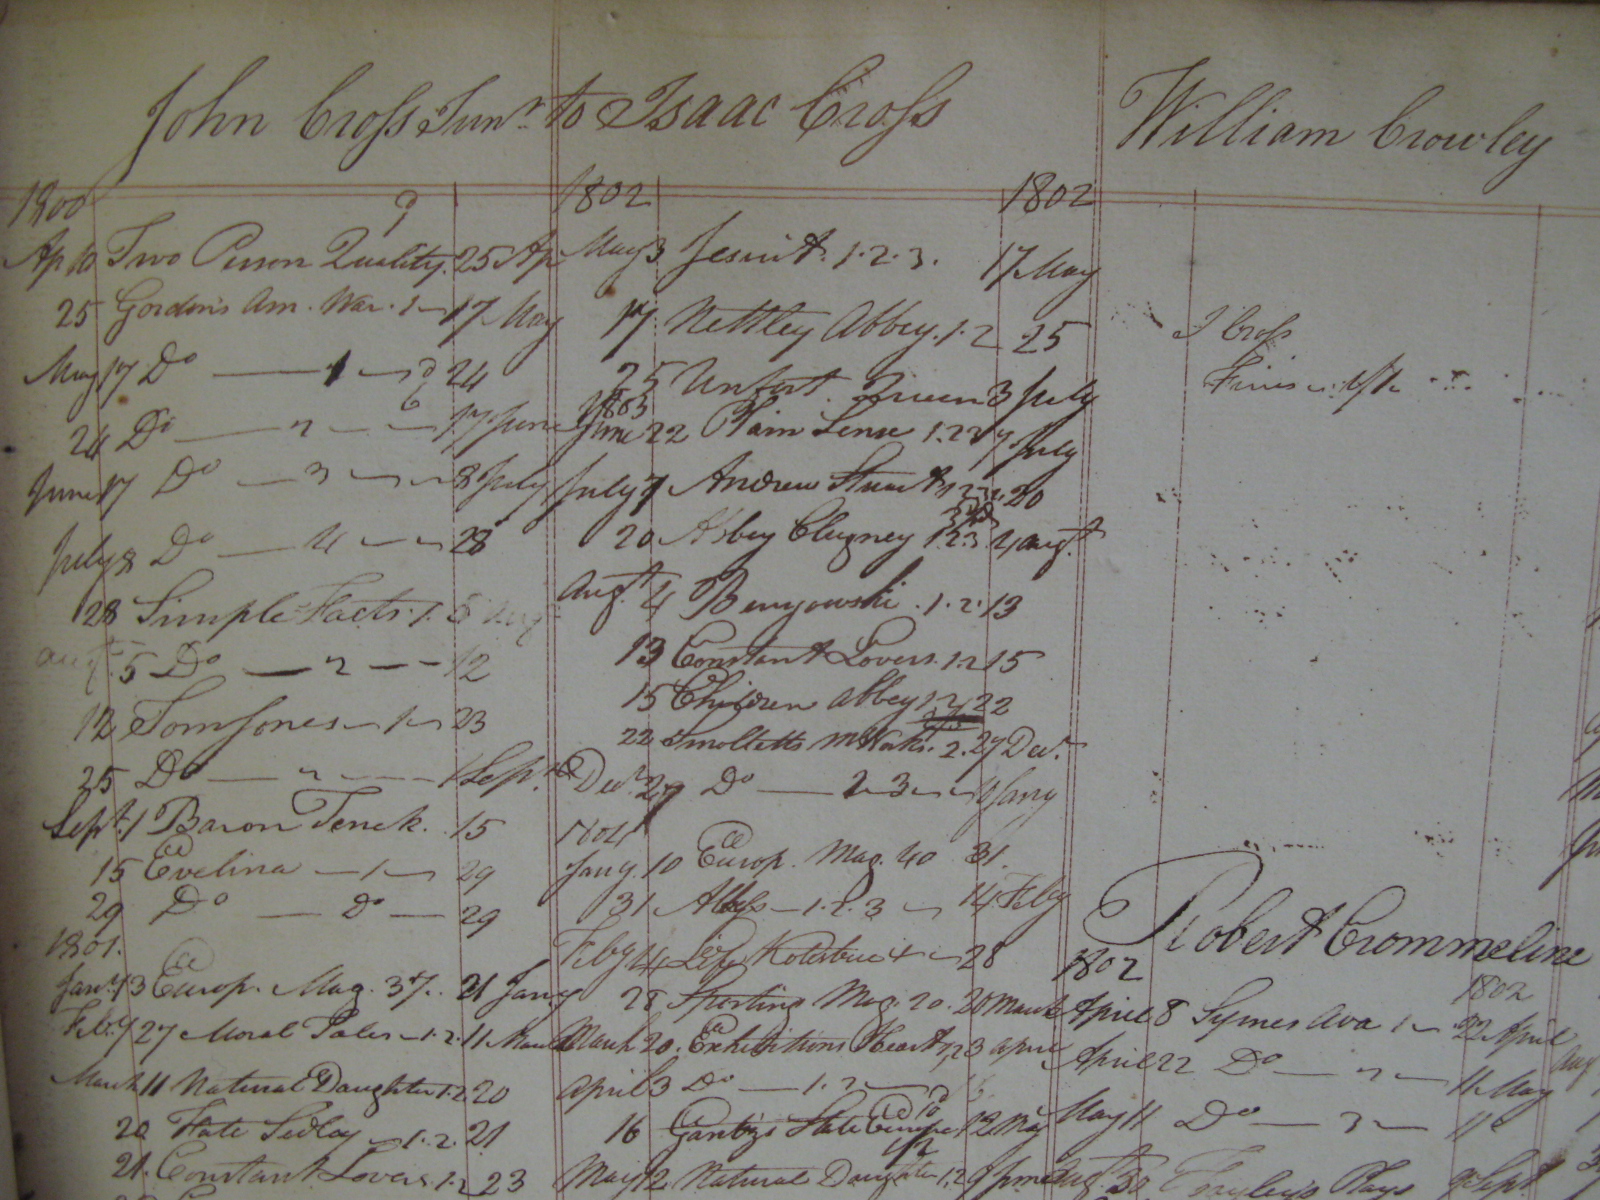 John Cross Junr to Isaac Cross
1800
Ap 10 Two Person Quality. 25 Ap
25 Gordon's Am. War. 1 17 May
May 17 Do 1 24
24 Do 2 17 June
June 17 Do 3 8 July
July 8 Do 4 28
28 Simple Facts. 1. 5 Augt
Augt. 5 Do 2 12
12 Tom Jones 1 23
25 Do 2 1 Sept.
Sept. 1 Baron Trenck. 15
15 Evelina 1 29
29 Do Do 29
1801.
Jany. 13 Europ. Mag. 37. 21 Jany
Feby 27 Moral Tales 1.2. 11 March
March 11 Natural Daughter 1.2 20
20 Kate Sedley 1.2. 21
21. Constant Lovers 1.2 23
1802
1802
May 3 Jesuit. 1.2.3. 17 May
17 Nettley Abbey. 1.2 25
25 Unfort. Queen 3 July
1803
June 22 Plain Sense 1.2 7 July
July 7 Andrew Stuart 20
20 Abbey Clugney 1.2.3 4 Augt.
Augt. 4 Benyowski. 1.2. 13
13 Constant Lovers. 1.2 15
15 Children Abbey 1.2 22
22 Smolletts Works. 2. 27 Decr.
Decr. 27 Do 3 Jany
1804
Jany. 10 Europ. Mag. 40 31.
31 1.2.3 14 Feby
Feby 14 Life Kotzebue 28
28 Sporting Mag. 20. 20 March
March 20. Exhibitions Heart 1,2 3 April
April 3 Do 1.2
16 State Europe 12 May
May 12 Natural Daughter 1,2 9 June
William Crowley
I Cross
Fines
Robert Crommeline
1802
1802
April 8 Symes Ava 1 22 April
April 22 Do 2 11 May
May 11 Do 3 11
Augt 30 Plays 9 Sept